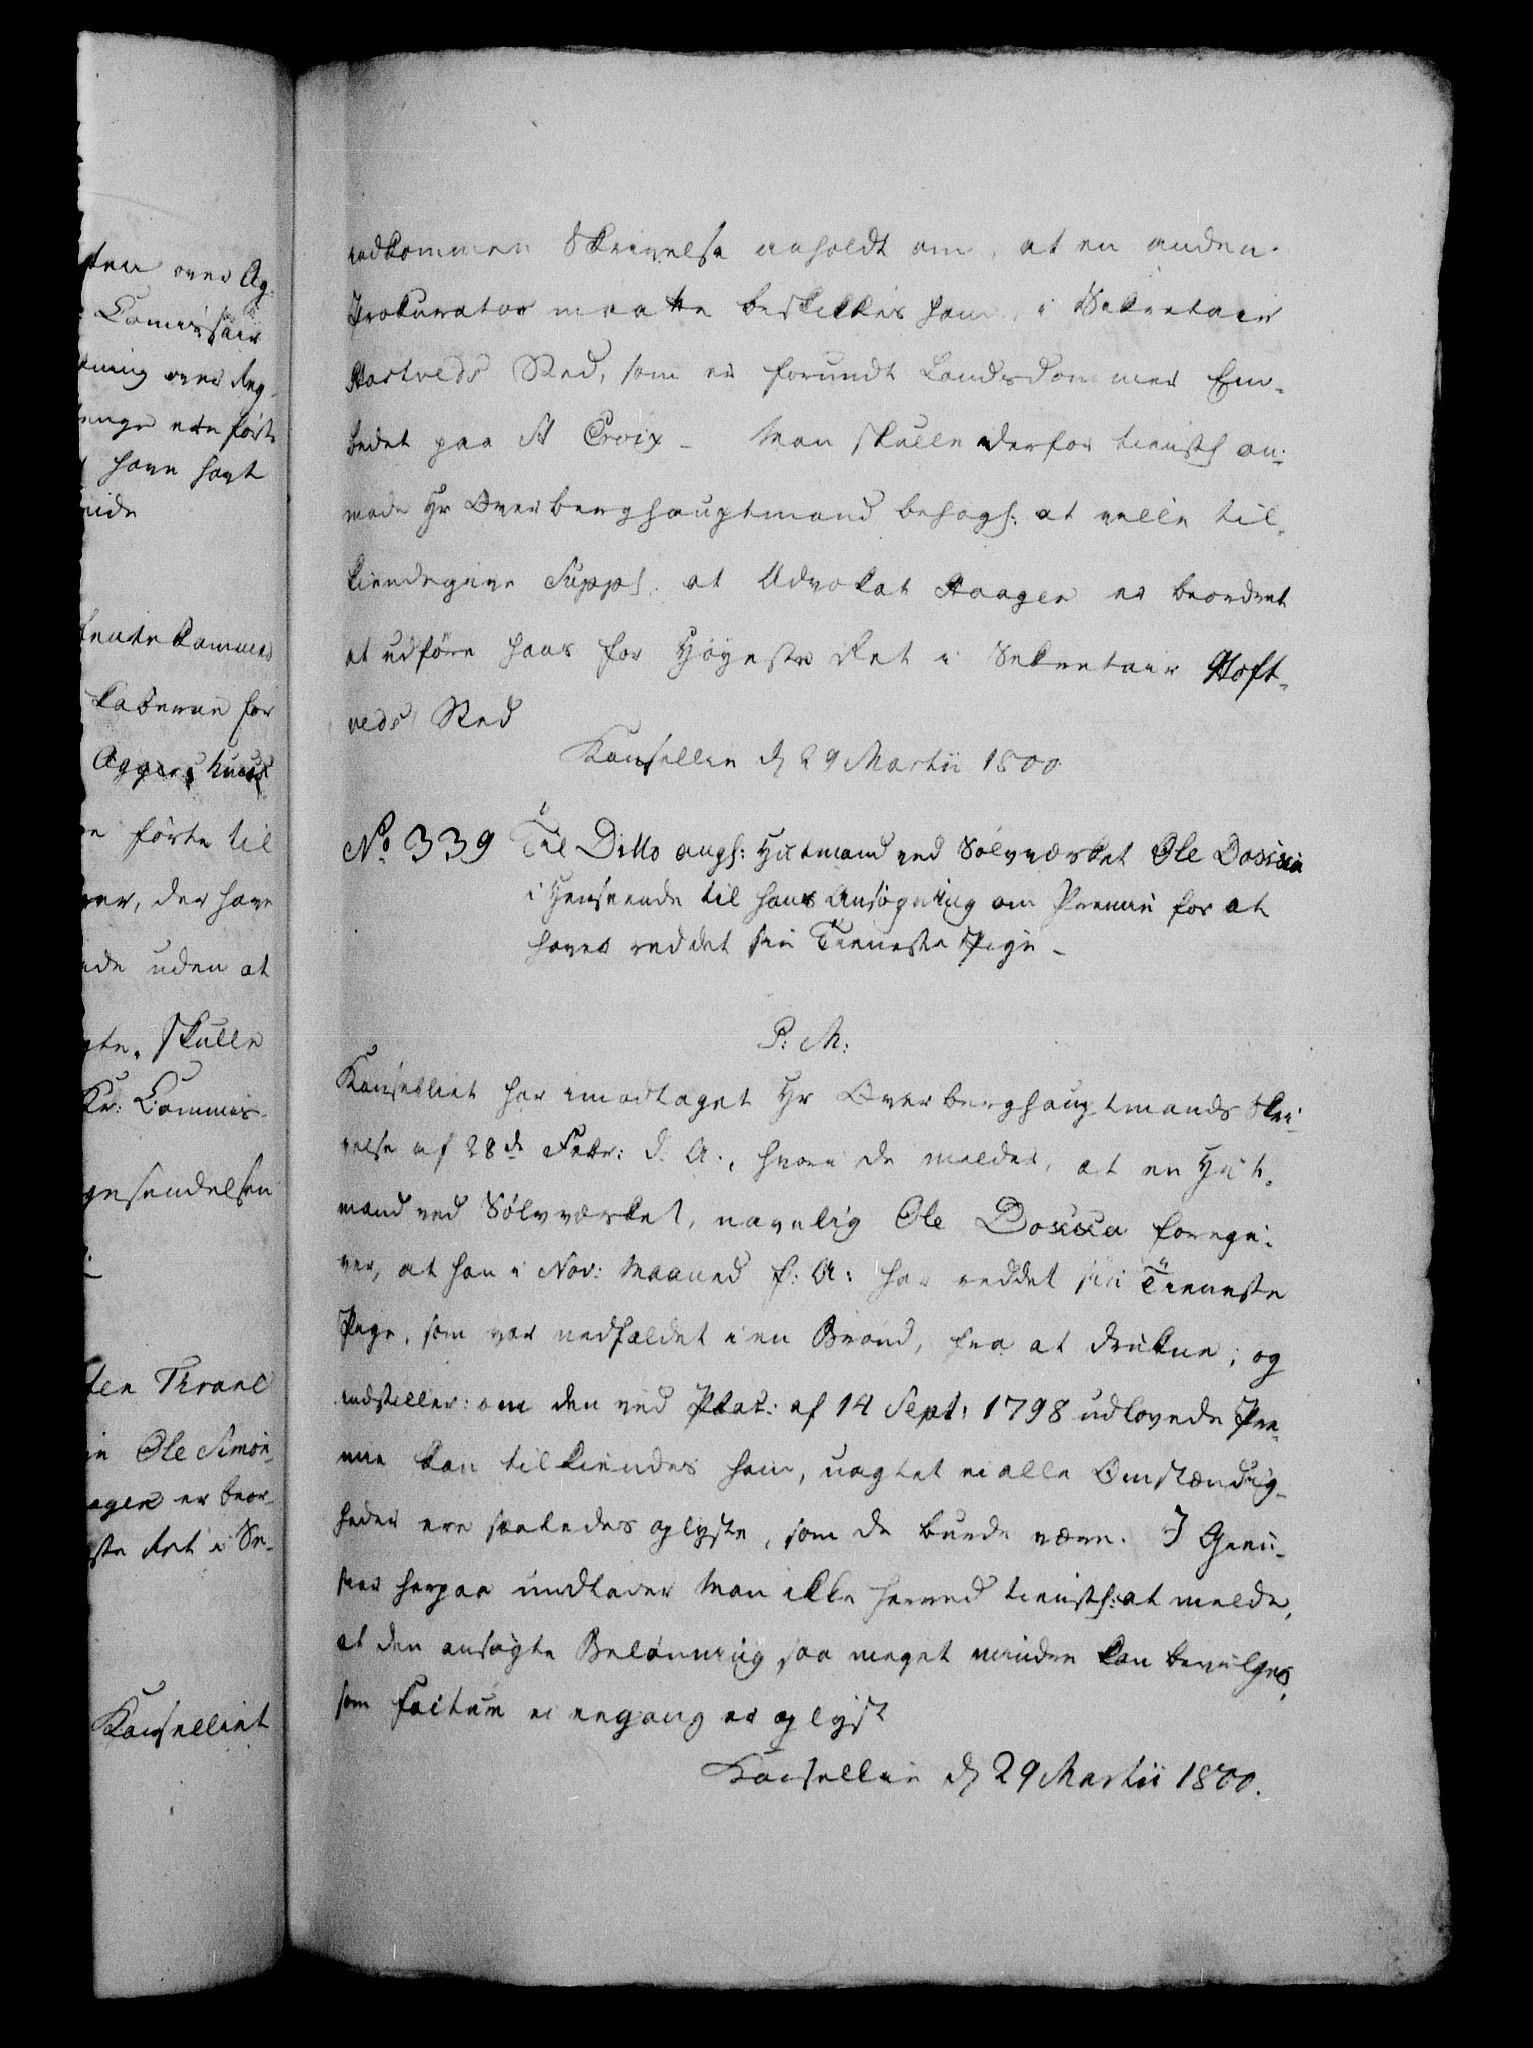 indkommen Skrivelse anholdt om, at en anden
Prokurator maatte beskikkes ham, i Sekretair
Hoftveds Sted, som er forundt Landsdommer Em-
bedet paa St Croix - Man skulle derfor tienstl an-
mode Hr Overberghauptmand behagl: at ville til-
kiendegive Suppl. at Advokat Haagen er beordret
at udföre hans for Höyeste Ret i Sekretair Hoft-
veds Sted
Kanselliet d 29 Martii 1800
No. 339 Til Ditto angl: Hütmand ved Sölvværket Ole
i Henseende til hans Ansögning om Præmie for at
haver reddet sin Tieneste Pige -
P: M:
Kanselliet har imodtaget Hr Overberghauptmands Skri-
velse af 28de Febr: d. A., hvori de melder, at en Hüt-
mand ved Sölvværket, navnlig Ole foregi-
ver, at han i Nov: Maaned f: A: har reddet sin Tieneste
Pige, som var nedfaldet i en Brönd, fra at drukne; og
indstiller: om den ved Plak: af 14 Sept: 1798 udlovede Præ-
mie kan tilkiendes ham, uagtet ei alle Omstændig-
heder ere saaledes oplyste, som de burde være. I Gien-
svar herpaa undlader Man ikke herved tienstl: at melde,
at den ansögte Belönning saa meget mindre kan bevilges,
som Factum ei engang er oplyst
Kanselliet d 29 Martii 1800.
sten over Ag-
Comissair
ning over Reg-
enge ere förte
have havt
eide
Rentekammer
kaberne for
Aggershuus
förte til
der have
ide uden at
skulle
Kr: Commis-
gesendelsen
ten Thrane
Ole Simon-
agen er beor-
ste Ret i Se-
Kanselliet